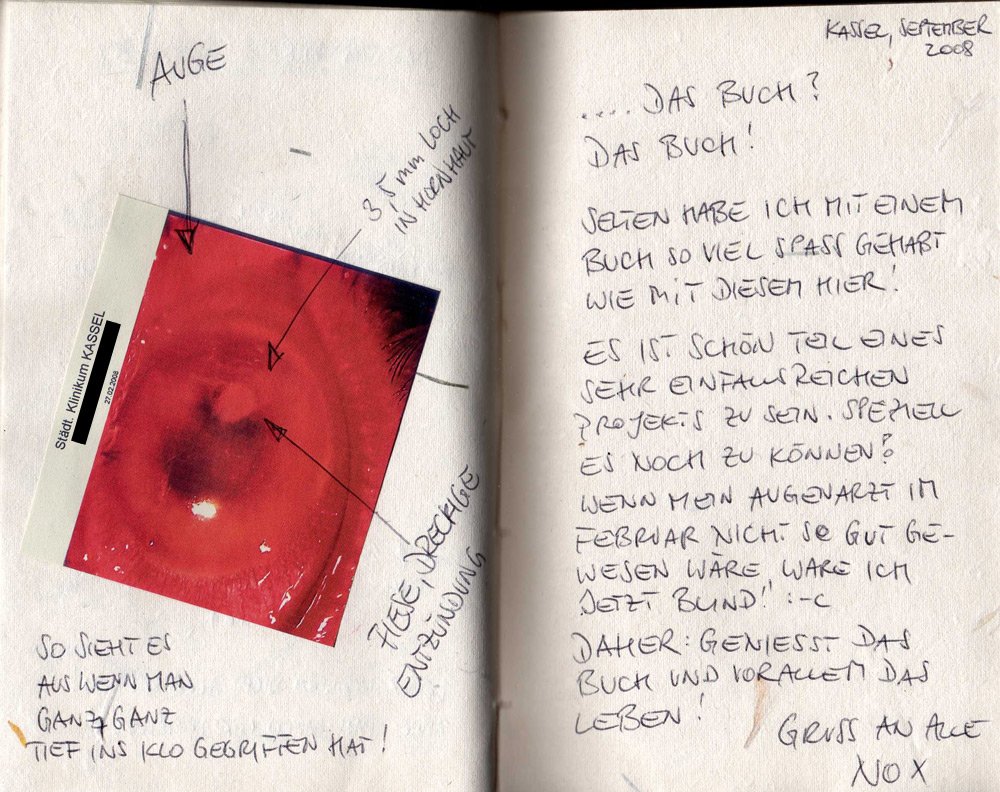 AUGE
3,5mm LOCH
IN HORNHAUT
Städt. Klinikum KASSEL
27.02.2008
FIESE, DRECKIGE
ENTZÜNDUNG
SO SIEHT ES
AUS WENN MAN
GANZ, GANZ
TIEF INS KLO GEGRIFFEN HAT!
KASSEL, SEPTEMBER
2008
.....DAS BUCH?
DAS BUCH!
SELTEN HABE ICH MIT EINEM
BUCH SO VIEL SPASS GEHABT
WIE MIT DIESEM HIER!
ES IST SCHÖN TEIL EINES
SEHR EINFALLSREICHEN
PROJEKTS ZU SEIN. SPEZIELL
ES NOCH ZU KÖNNEN?
WENN MEIN AUGENARZT IM
FEBRUAR NICHT SO GUT GE-
WESEN WÄRE, WÄRE ICH
JETZT BLIND! :-C
DAHER: GENIESST DAS
BUCH UND VORALLEM DAS
LEBEN!
GRUSS AN ALLE
NOX